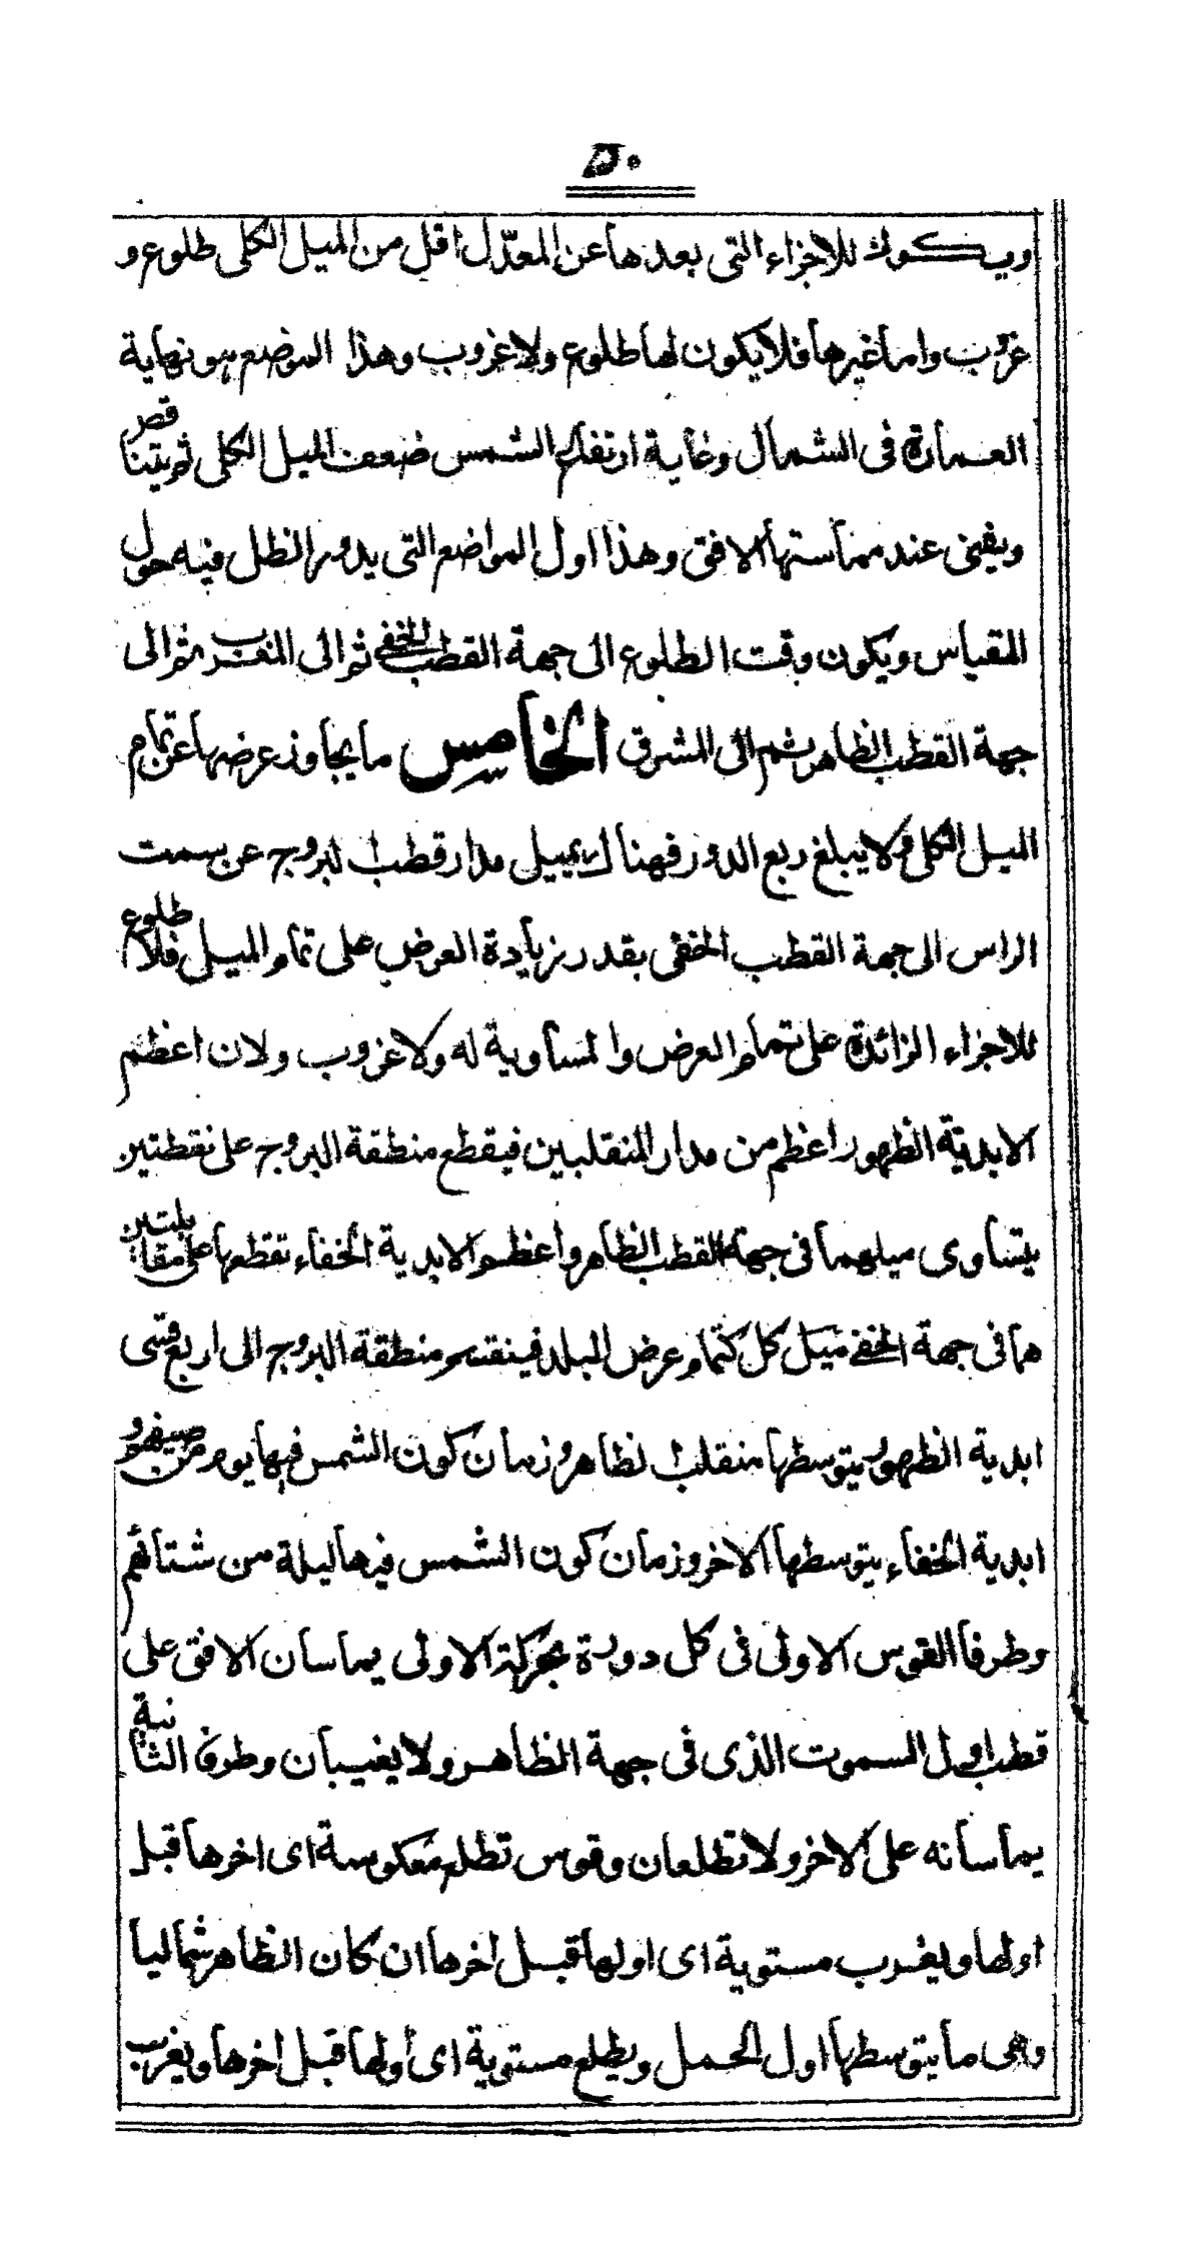 ٥٠
ويكون للاجزاء التى بعدها عن المعدّل اقل من الميل الكلى طلوع و
غروب واما غيرها فلا يكون لها طلوع ولا غروب وهذا الموضع هو نهاية
العمارة فى الشمال وغاية ارتفاع الشمس ضعف الميل الكلى ثم يتناقص
ويفنى عند مماستها الافق وهذا اول المواضع التى يدور الظل فيه حول
المقياس ويكون وقت الطلوع الى جهة القطب الخفى ثم الى المغرب ثم الى
جهة القطب الظاهر ثم الى المشرق الخامس ما يجاوز عرضها عن تمام
الميل الكلى ولا يبلغ ربع الدور فهناك يميل مدار قطب البروج عن سمت
الراس الى جهة القطب الخفى بقدر زيادة العرض على تمام الميل فلا طلوع
للاجزاء الزائدة على تمام العرض والمساوية له ولا غروب ولان اعظم
الابدية الظهور اعظم من مدار المنقلبين فيقطع منطقة البروج على نقطتين
يتساوى ميلهما فى جهة القطب الظاهر واعظم الابدية الخفاء تقطعها على مقابلتين
هما فى جهة الخفى ميل كل كتمام عرض البلد فينقسم منطقة البروج الى اربع قسى
ابدية الظهور يتوسطها منقلب الظاهر وزمان كون الشمس فيها يوم من صيفهم و
ابدية الخفاء يتوسطها الاخر وزمان كون الشمس فيها ليلة من شتائهم
وطرفا القوس الاولى فى كل دورة بحركة الاولى يماسان الافق على
قطب اول السموت الذى فى جهة الظاهر ولا يغيبان وطرفا الثانية
يماسانه على الاخر ولا تطلعان وقوس تطلع معكوسة اى اخرها قبل
اولها ويغرب مستوية اى اولها قبل اخرها ان كان الظاهر شماليا
وهى ما يتوسطها اول الحمل ويطلع مستوية اى اولها قبل اخرها ويغرب